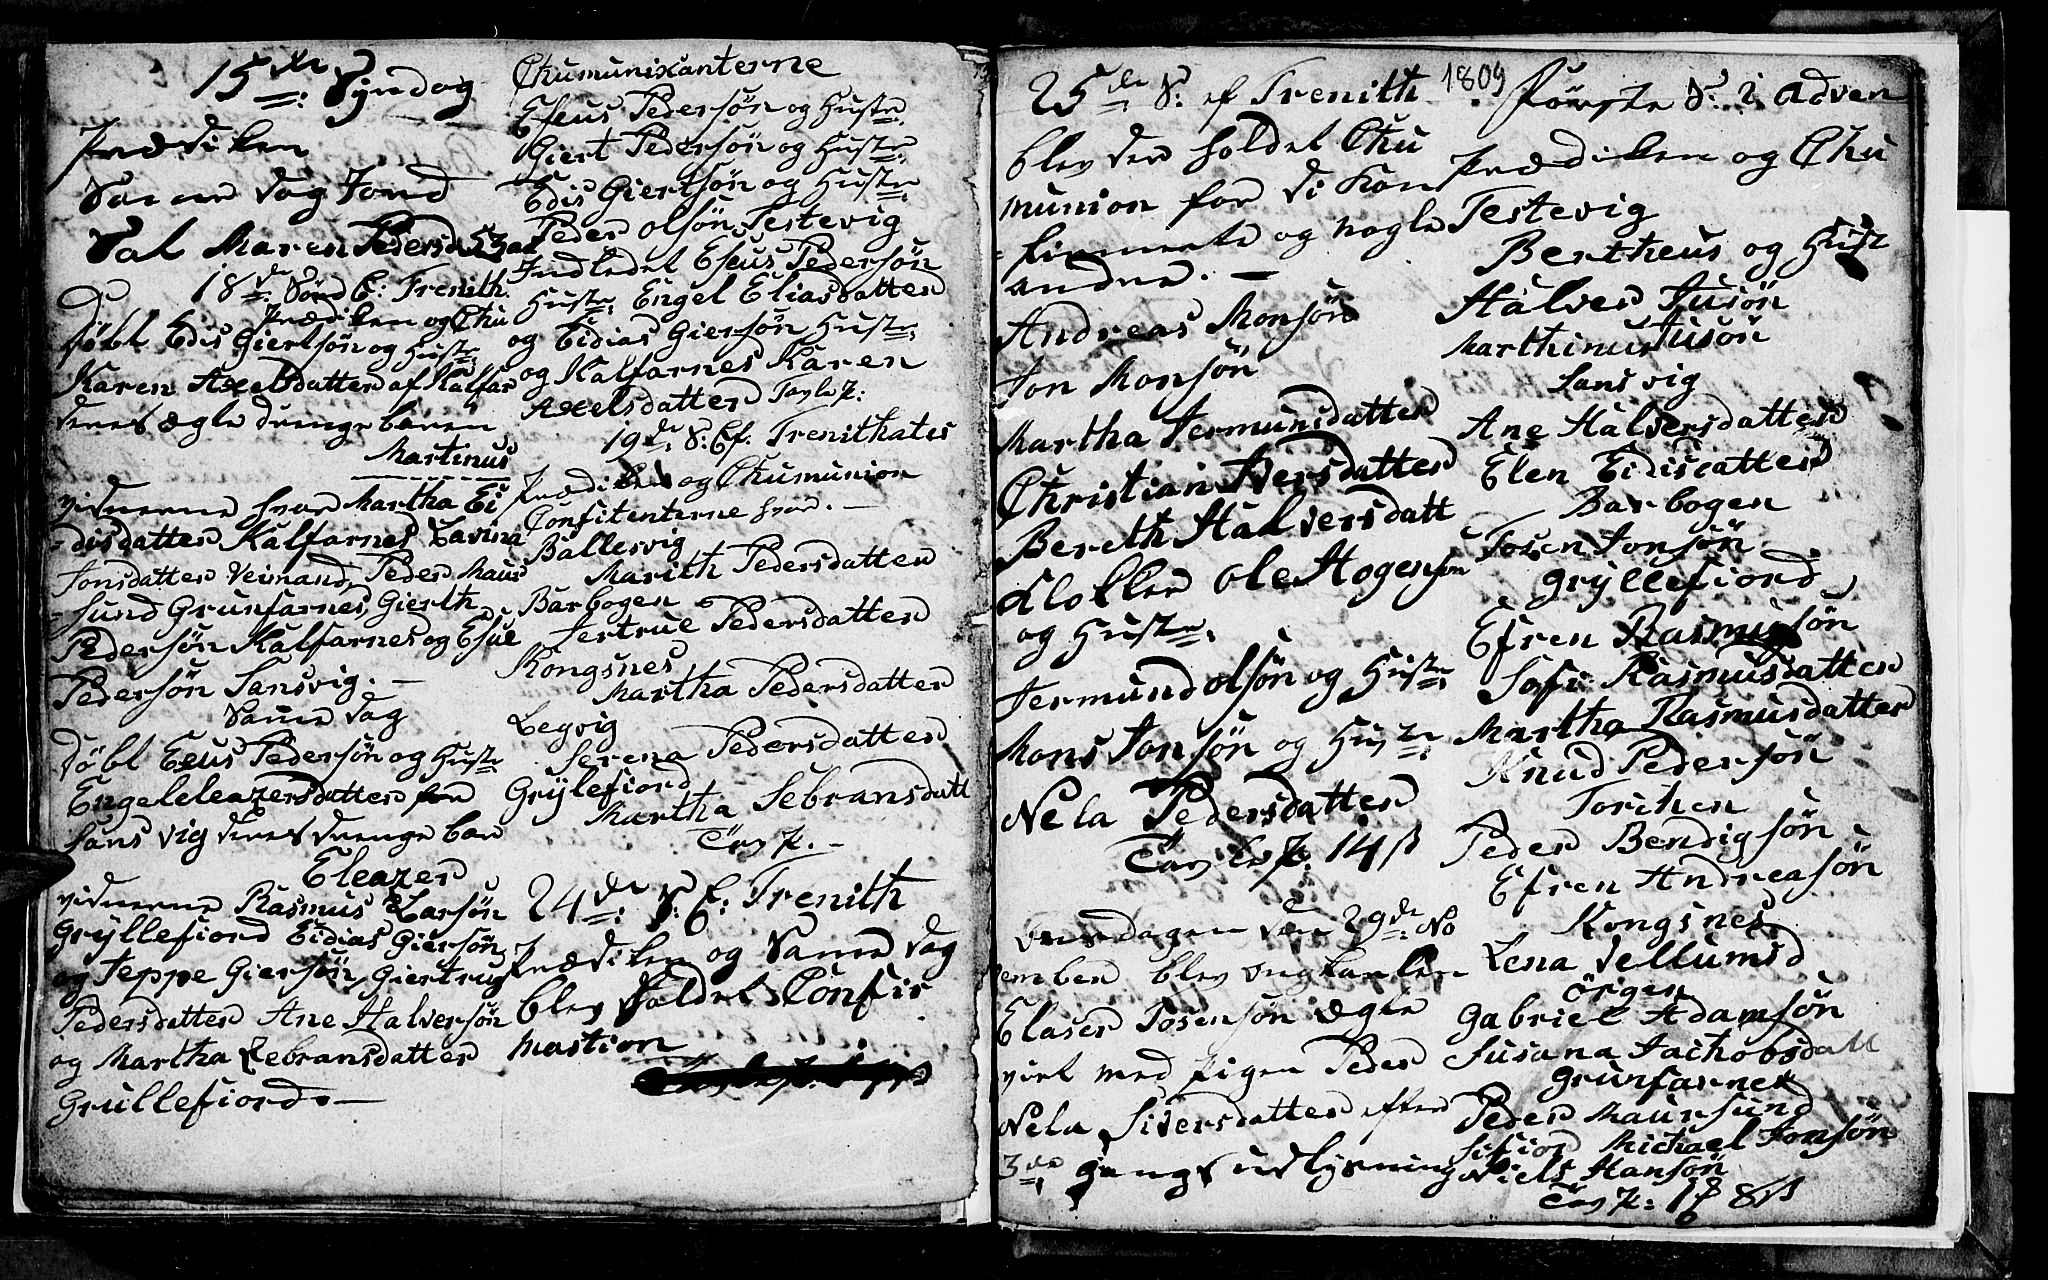 15de Syndag
Prædiken
Samme dag Jord
Sat Maren Pedersd
18de Sønd E: Trenith.
Prædiken og Chu
døbt Edis Giertsøn og Hustr
Karen Axelsdatter af Kalfar
deres ægte drenge baren
Martinus
vidnerne hvar Martha Ei
disdatter Kalfarnes Lavina
Jonsdatter Veimand, Peder Maur
sund Grunfarnes, Gierth
Pedersøn Kalfarnes og Esue
Pedersøn Sansvig. –
Samme dag
døbt Eseus Pedersøn og Hustr
Engel eleazersdatter
Sans vig deres drenge bar
Eleazer
vidnerne Rasmus Larsøn
Gryllefiord Eidias Giersøn
og Jeppe Giersøn, Giertrug
Pedersdatter Ane Halversøn
og Martha Zebransdatter
Grullefiord. –
Chumunixanterne
Eseus Pedersøn og Hustr
Giert Pedersøn og Hustr
Edis Giertsøn og Hustr
Peder olsøn Testevig
Indledet Eseus Pedersøn
Hustr Engel Eliasdatter
og Eidias Giersøn Hustr
og Kalfarnes Karen
Axelsdatter
19de S: Ef. Trenithates
Prædiken og Chumunion
Confitenterne hvar. –
Ballesvig
Marith Pedersdatter
Barbogen
Jertrue Pedersdatter
Kongsnes
Martha Pedersdatter
Legvig
Serena Pedersdatter
Grylefiord
Martha Sebransdatt
24de S: E: Trenith
Prædiken og Samme dag
blev Holdet Confir
mastion
25de S: ef Trenith
blev der holdet Chu
munion for di Kon
firmerte og nogle
andre. –
Andreas Monsøn
Jon Monsøn
Martha Jermunsdatter
Christian Iversdatter
Bereth Halversdatt
Klokker ole Hogensøn
og Hustr.
Jermund olsøn og Hustr
Mons Jonsøn og Hustr
Nela Pedersdatter
14 ß
onsdagen den 29de No
ember blev
Elaser Tosensøn ægte
viet med pigen Peder
Nela Siversdatter efter
3de gangs udlysning
1809
Første S: i Adven
Prædiken og Chu
Testevig
Bertheus og Hust
Halver Jusøn
Marthinus Jusøn
Sans vig
Ane Halversdatter
Elen Eidisdatter
Barbogen
Tosen Jonsøn
Gryllefiord
Efren Rasmusøn
Sofi Rasmusdatter
Martha Rasmusdatter
Knud Pedersøn
Torchen
Peder Bendigsøn
Efren Andreasøn
Kongsnes
Lena Vellumsd
Örgen
Gabriel Adamsøn
Susana Jachobsdatt
Grunfarnes
Peder Maursund
Sifiord Michael Jonsøn
Niels Hansøn